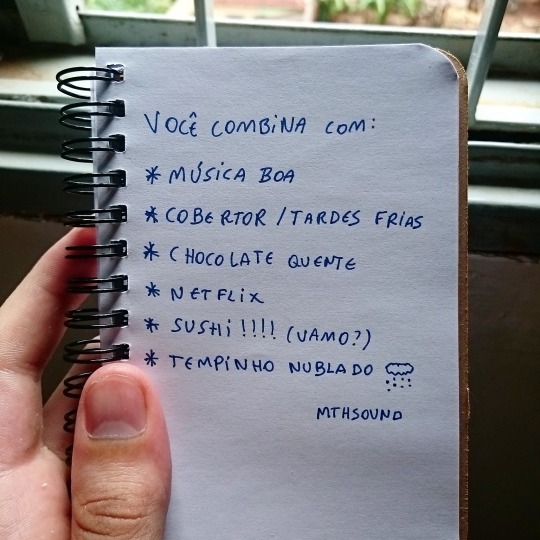 VOCÊ COMBINA COM:
* MÚSICA BOA
* COBERTOR / TARDES FRIAS
* CHOCOLATE QUENTE
* NETFLIX
* SUSHI !!!! (VAMO?)
* TEMPINHO NUBLADO
MTHSOUND